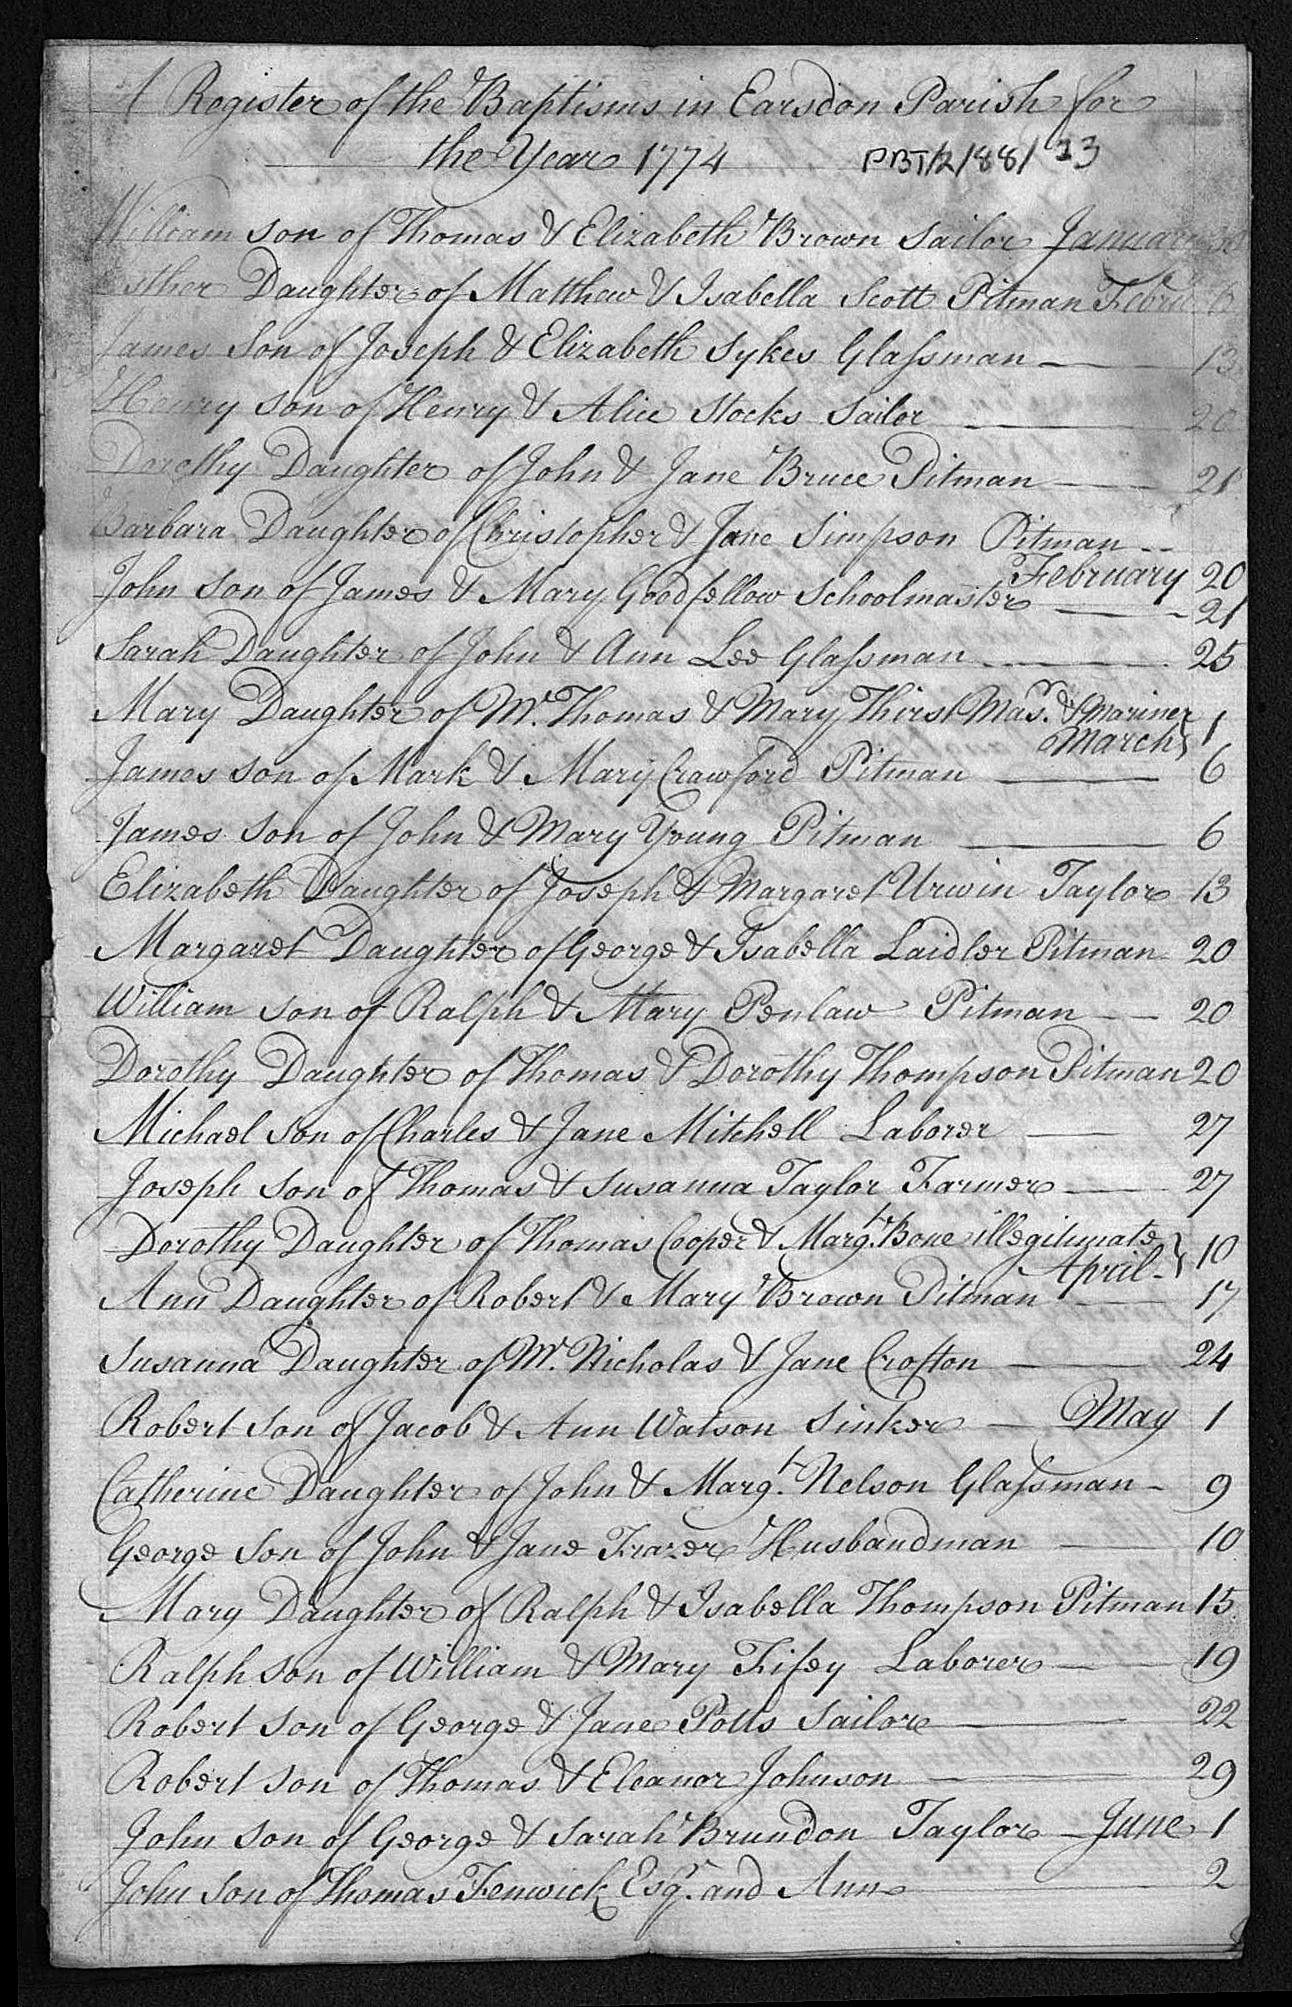 A Register of the Baptisms in Earsdon Parish for
the Year 1774 PBT/2/88/13
William son of Thomas & Elizabeth Brown Sailor January
Daughter of Matthew & Isabella Scott Pitman 6
James Son of Joseph & Elizabeth Sykes Glassman 13
Henry son of Henry & Alice Stocks Sailor 20
Dorothy Daughter of John & Jane Bruce Pitman 21
Barbara Daughter of Christopher & Jane Simpson Pitman
February 20
John son of James & Mary Goodfellow Schoolmaster 21
Sarah Daughter of John & Ann Lee Glassman 25
Mary Daughter of Mr. Thomas & Mary Thirst Masr. & Mariner
March 1
James son of Mark & Mary Crawford Pitman 6
James Son of John & Mary Young Pitman 6
Elizabeth Daughter of Joseph & Margaret Urwin Taylor 13
Margaret Daughter of George & Isabella Laidler Pitman 20
William son of Ralph & Mary Penlaw Pitman 20
Dorothy Daughter of Thomas & Dorothy Thompson Pitman 20
Michael Son of Charles & Jane Mitchell Laborer 27
Joseph Son of Thomas & Susanna Taylor Farmer 27
Dorothy Daughter of Thomas Cooper & Margt. Bone illegitimate
April 10
Ann Daughter of Robert & Mary Brown Pitman 17
Susanna Daughter of Mr. Nicholas & Jane Crofton 24
Robert Son of Jacob & Ann Watson Sinker May 1
Catherine Daughter of John & Margt. Nelson Glassman 9
George Son of John & Jane Frazer Husbandman 10
Mary Daughter of Ralph & Isabella Thompson Pitman 15
Ralph son of William & Mary Fifey Laborer 19
Robert Son of George & Jane Potts Sailor 22
Robert Son of Thomas & Eleanor Johnson 29
John Son of George & Sarah Brundon Taylor June 1
John Son of Thomas Fenwick Esqr. and Ann 2